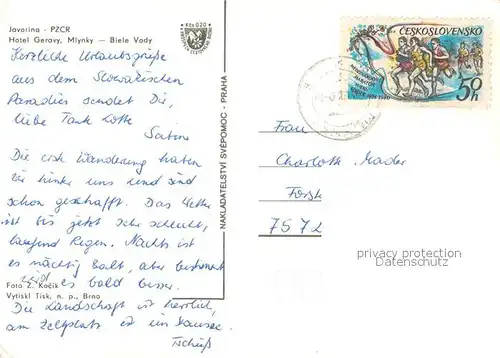 Javorina - PZCR
Hotel Geravy, Mlynky — Biele Vody
Kčs 0,20
Herzliche Urlaubsgrüße
aus dem Slowakischen
Paradies sendet Die,
liebe Tante Lotte
Sabine
Die erste Wanderung haben
wir hinter uns und sind
schon geschafft. Das Wetter
ist bis jetzt sehr schlecht,
laufend Regen. Nachts ist
es mächtig kalt, aber bestimmt
wird es bald besser.
Foto Z. Kočík
Vytiskl Tisk, n. p., Brno
Die Landschaft ist herrlich,
am Zeltplatz ist ein
Tschüß
NAKLADATELSTVÍ SVÉPOMOC - PRAHA
ČESKOSLOVENSKO
50h
Frau
Charlotte Mader
Forst
7572
privacy protection
Datenschutz